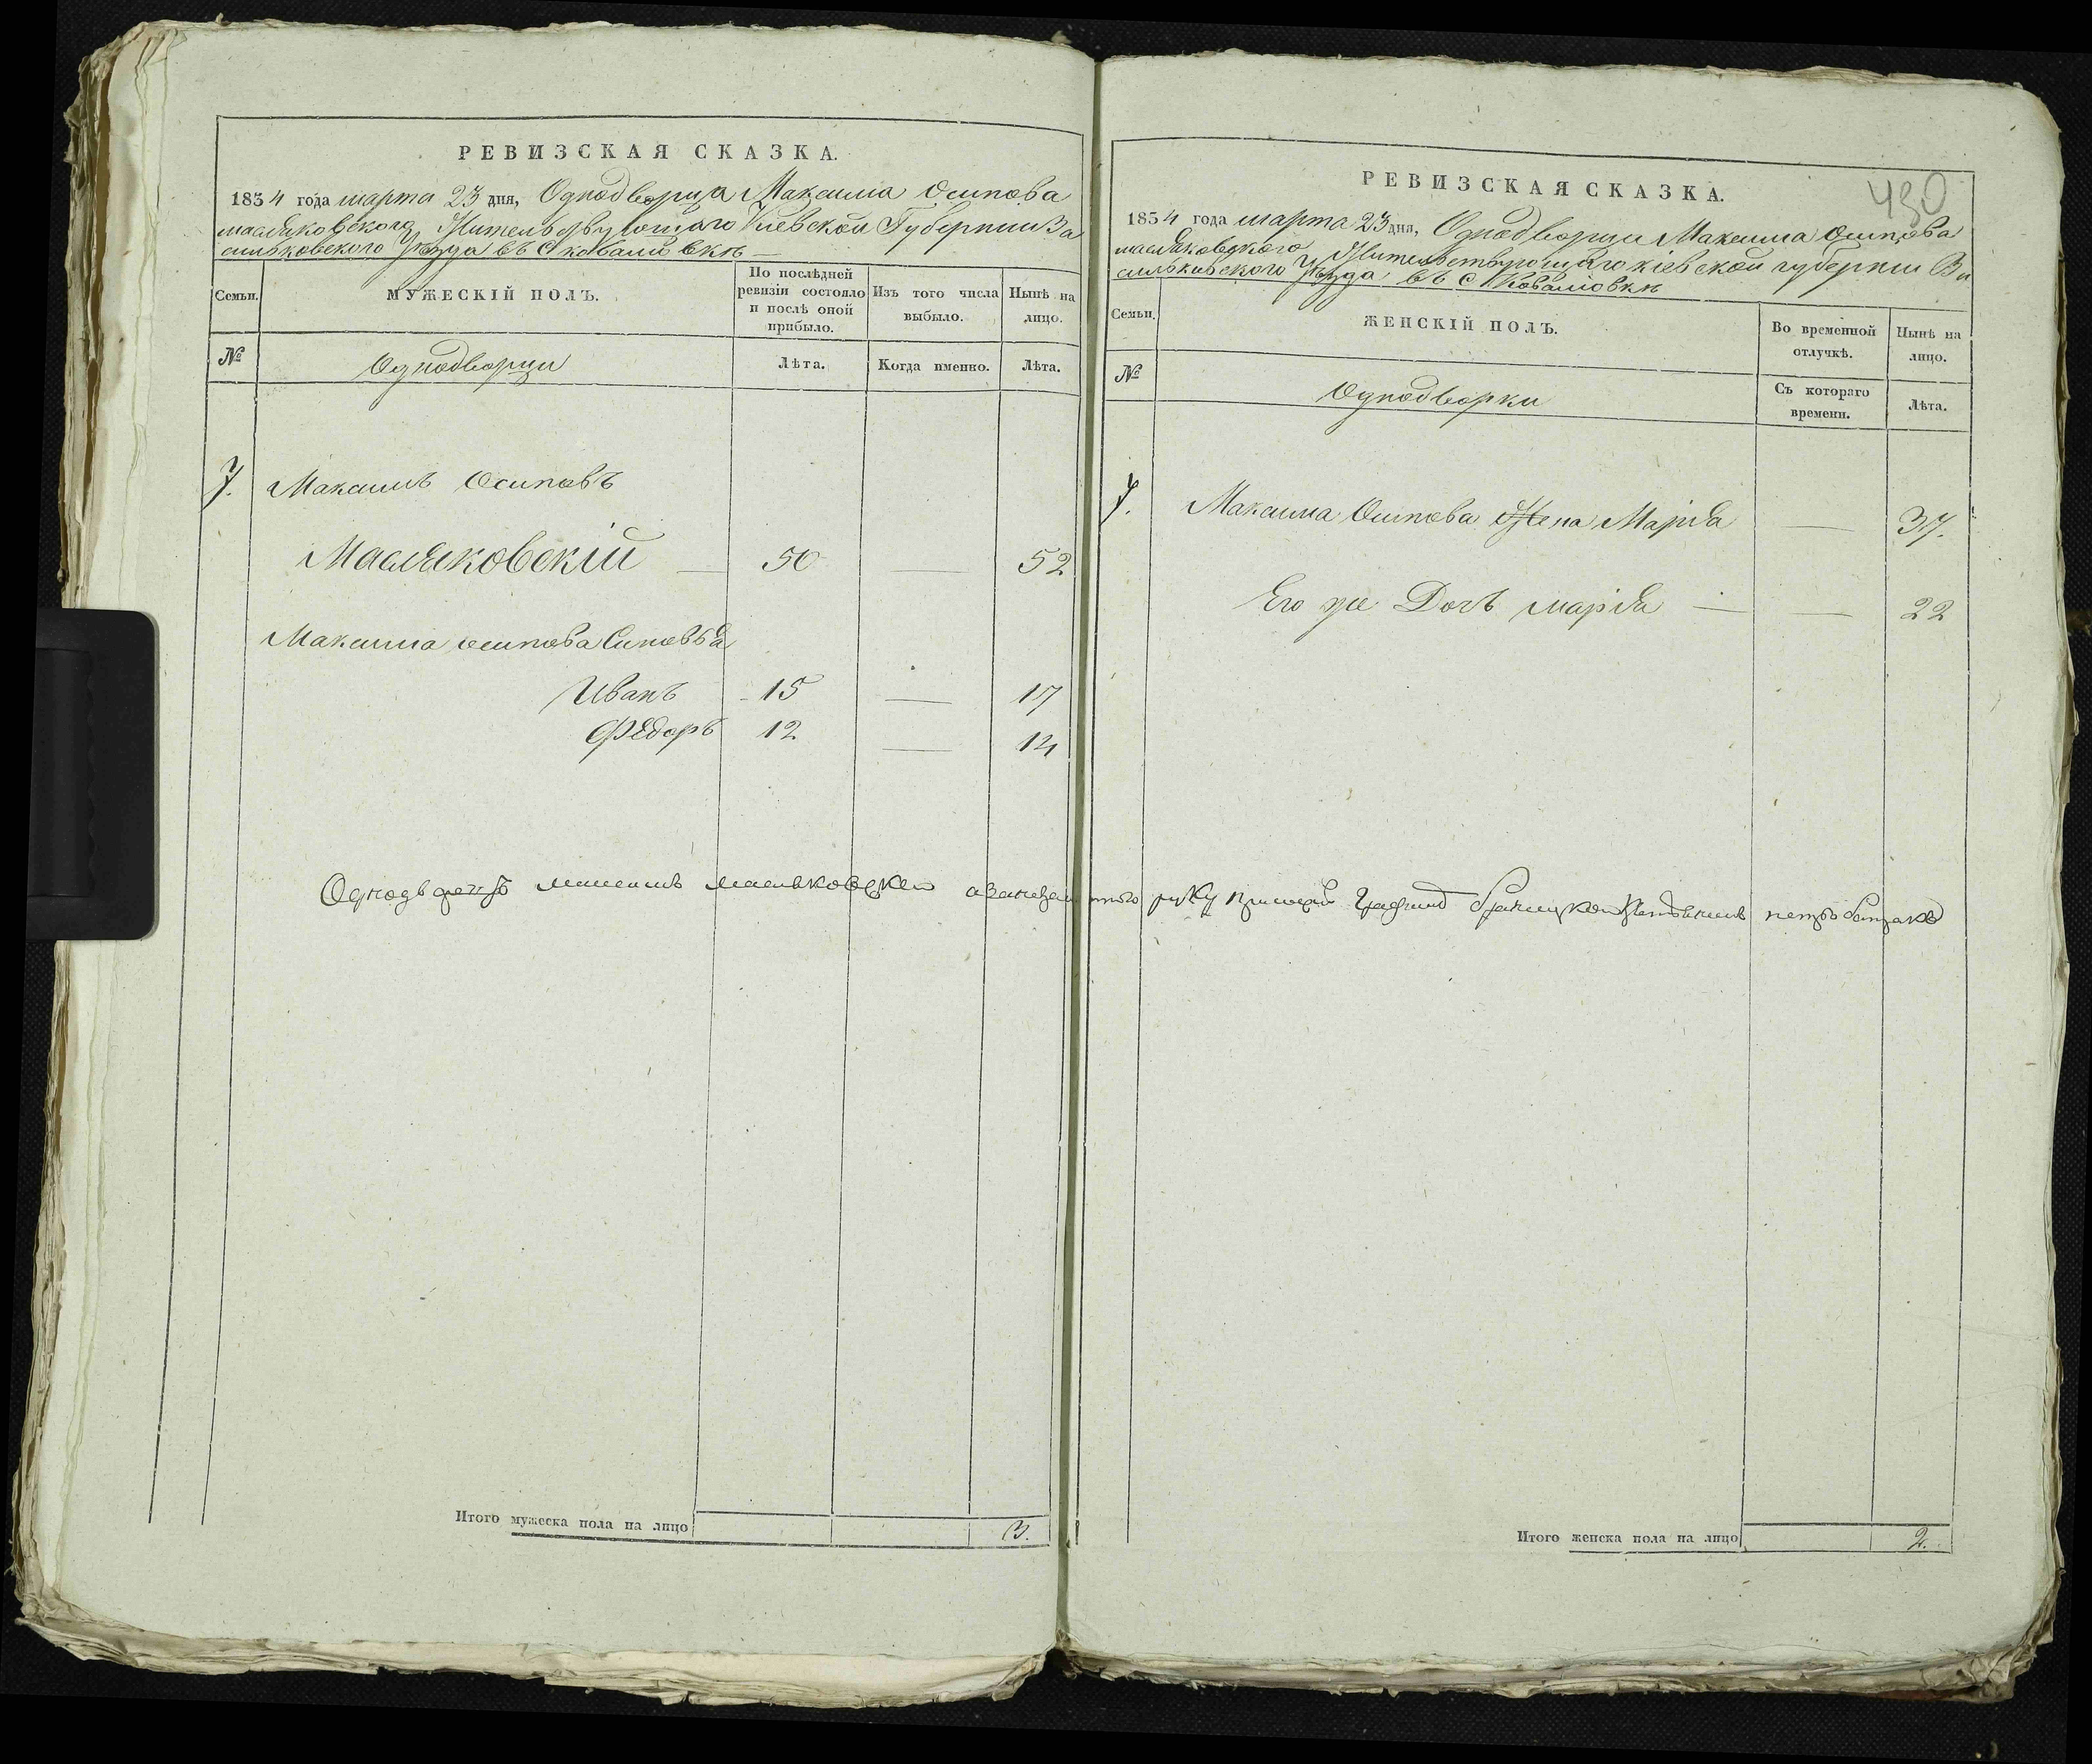 РЕВИЗСКАЯ СКАЗКА.
1854 года марта 23 дня, Однодворца Максима Осипова
масляковского Жительствующаго Киевской Губернии Ва
сильковского Уѣзда въ С Ковалювкѣ —
Семьи.
МУЖЕСКІЙ ПОЛЪ.
По послѣдней ревизіи состояло и послѣ оной прибыло.
Изъ того числа выбыло.
Нынѣ на лицо.
№
Однодворцы
Лѣта.
Когда именно.
Лѣта.
7. Максимъ Осиповъ
Масляковскій — 50 — 52
Максима осипова Сыновья
Иванъ - 15 — 17
Федоръ 12 — 14
Однодворецъ
Итого мужеска пола на лицо 3.
430
РЕВИЗСКАЯ СКАЗКА.
1854 года марта 23 дня, Однодворци Максима Осипова
масляковского Жительствующаго кіевской губернии Ва
сильковского Уѣзда въ С Ковалювкѣ
Семьи.
ЖЕНСКІЙ ПОЛЪ.
Во временной отлучкѣ.
Нынѣ на лицо.
№
Однодворки
Съ котораго времени.
Лѣта.
7. Максима Осипова Жена Марія — 37.
Его же Дочь марія — — 22
руку
Итого женска пола на лицо 2.